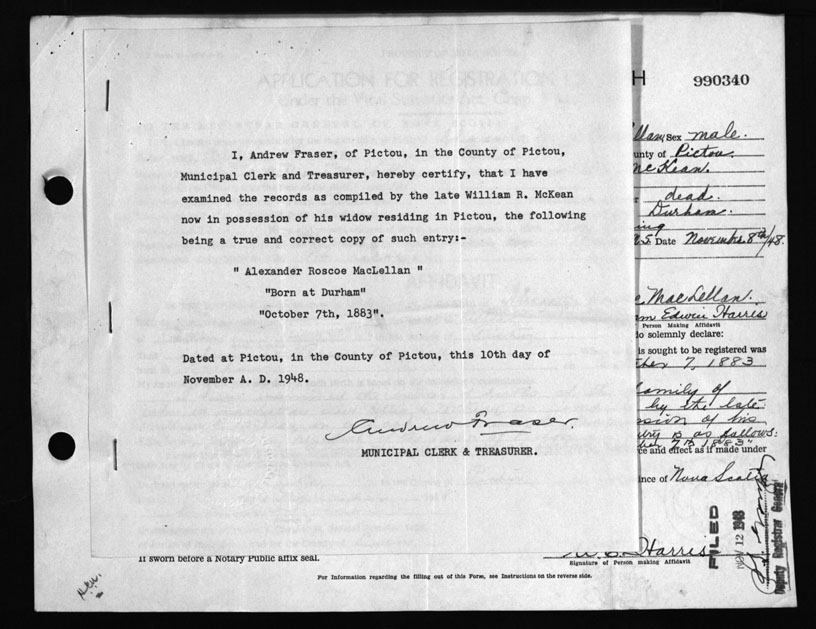 H 990340
I, Andrew Fraser, of Pictou, in the County of Pictou,
Municipal Clerk and Treasurer, hereby certify, that I have
examined the records as compiled by the late William R. McKean
now in possession of his widow residing in Pictou, the following
being a true and correct copy of such entry:-
" Alexander Roscoe MacLellan "
"Born at Durham"
"October 7th, 1883".
Dated at Pictou, in the County of Pictou, this 10th day of
November A. D. 1948.
Andrew Fraser.
MUNICIPAL CLERK & TREASURER.
llan, Sex male.
unty of Pictou.
McKean.
dead.
Durham.
ing
Date November 8th/48.
MacLellan.
am Edwin Harris
Person Making Affidavit
do solemnly declare:
is sought to be registered was
ber 7, 1883
family of
by the late
ssion of his
is as follows:
7th 1883"
ce and effect as if made under
ince of Nova Scotia
FILED
NOV 12 1948
Deputy Registrar General
Harris
Signature of Person making Affidavit
If sworn before a Notary Public affix seal.
For Information regarding the filling out of this Form, see Instructions on the reverse side.